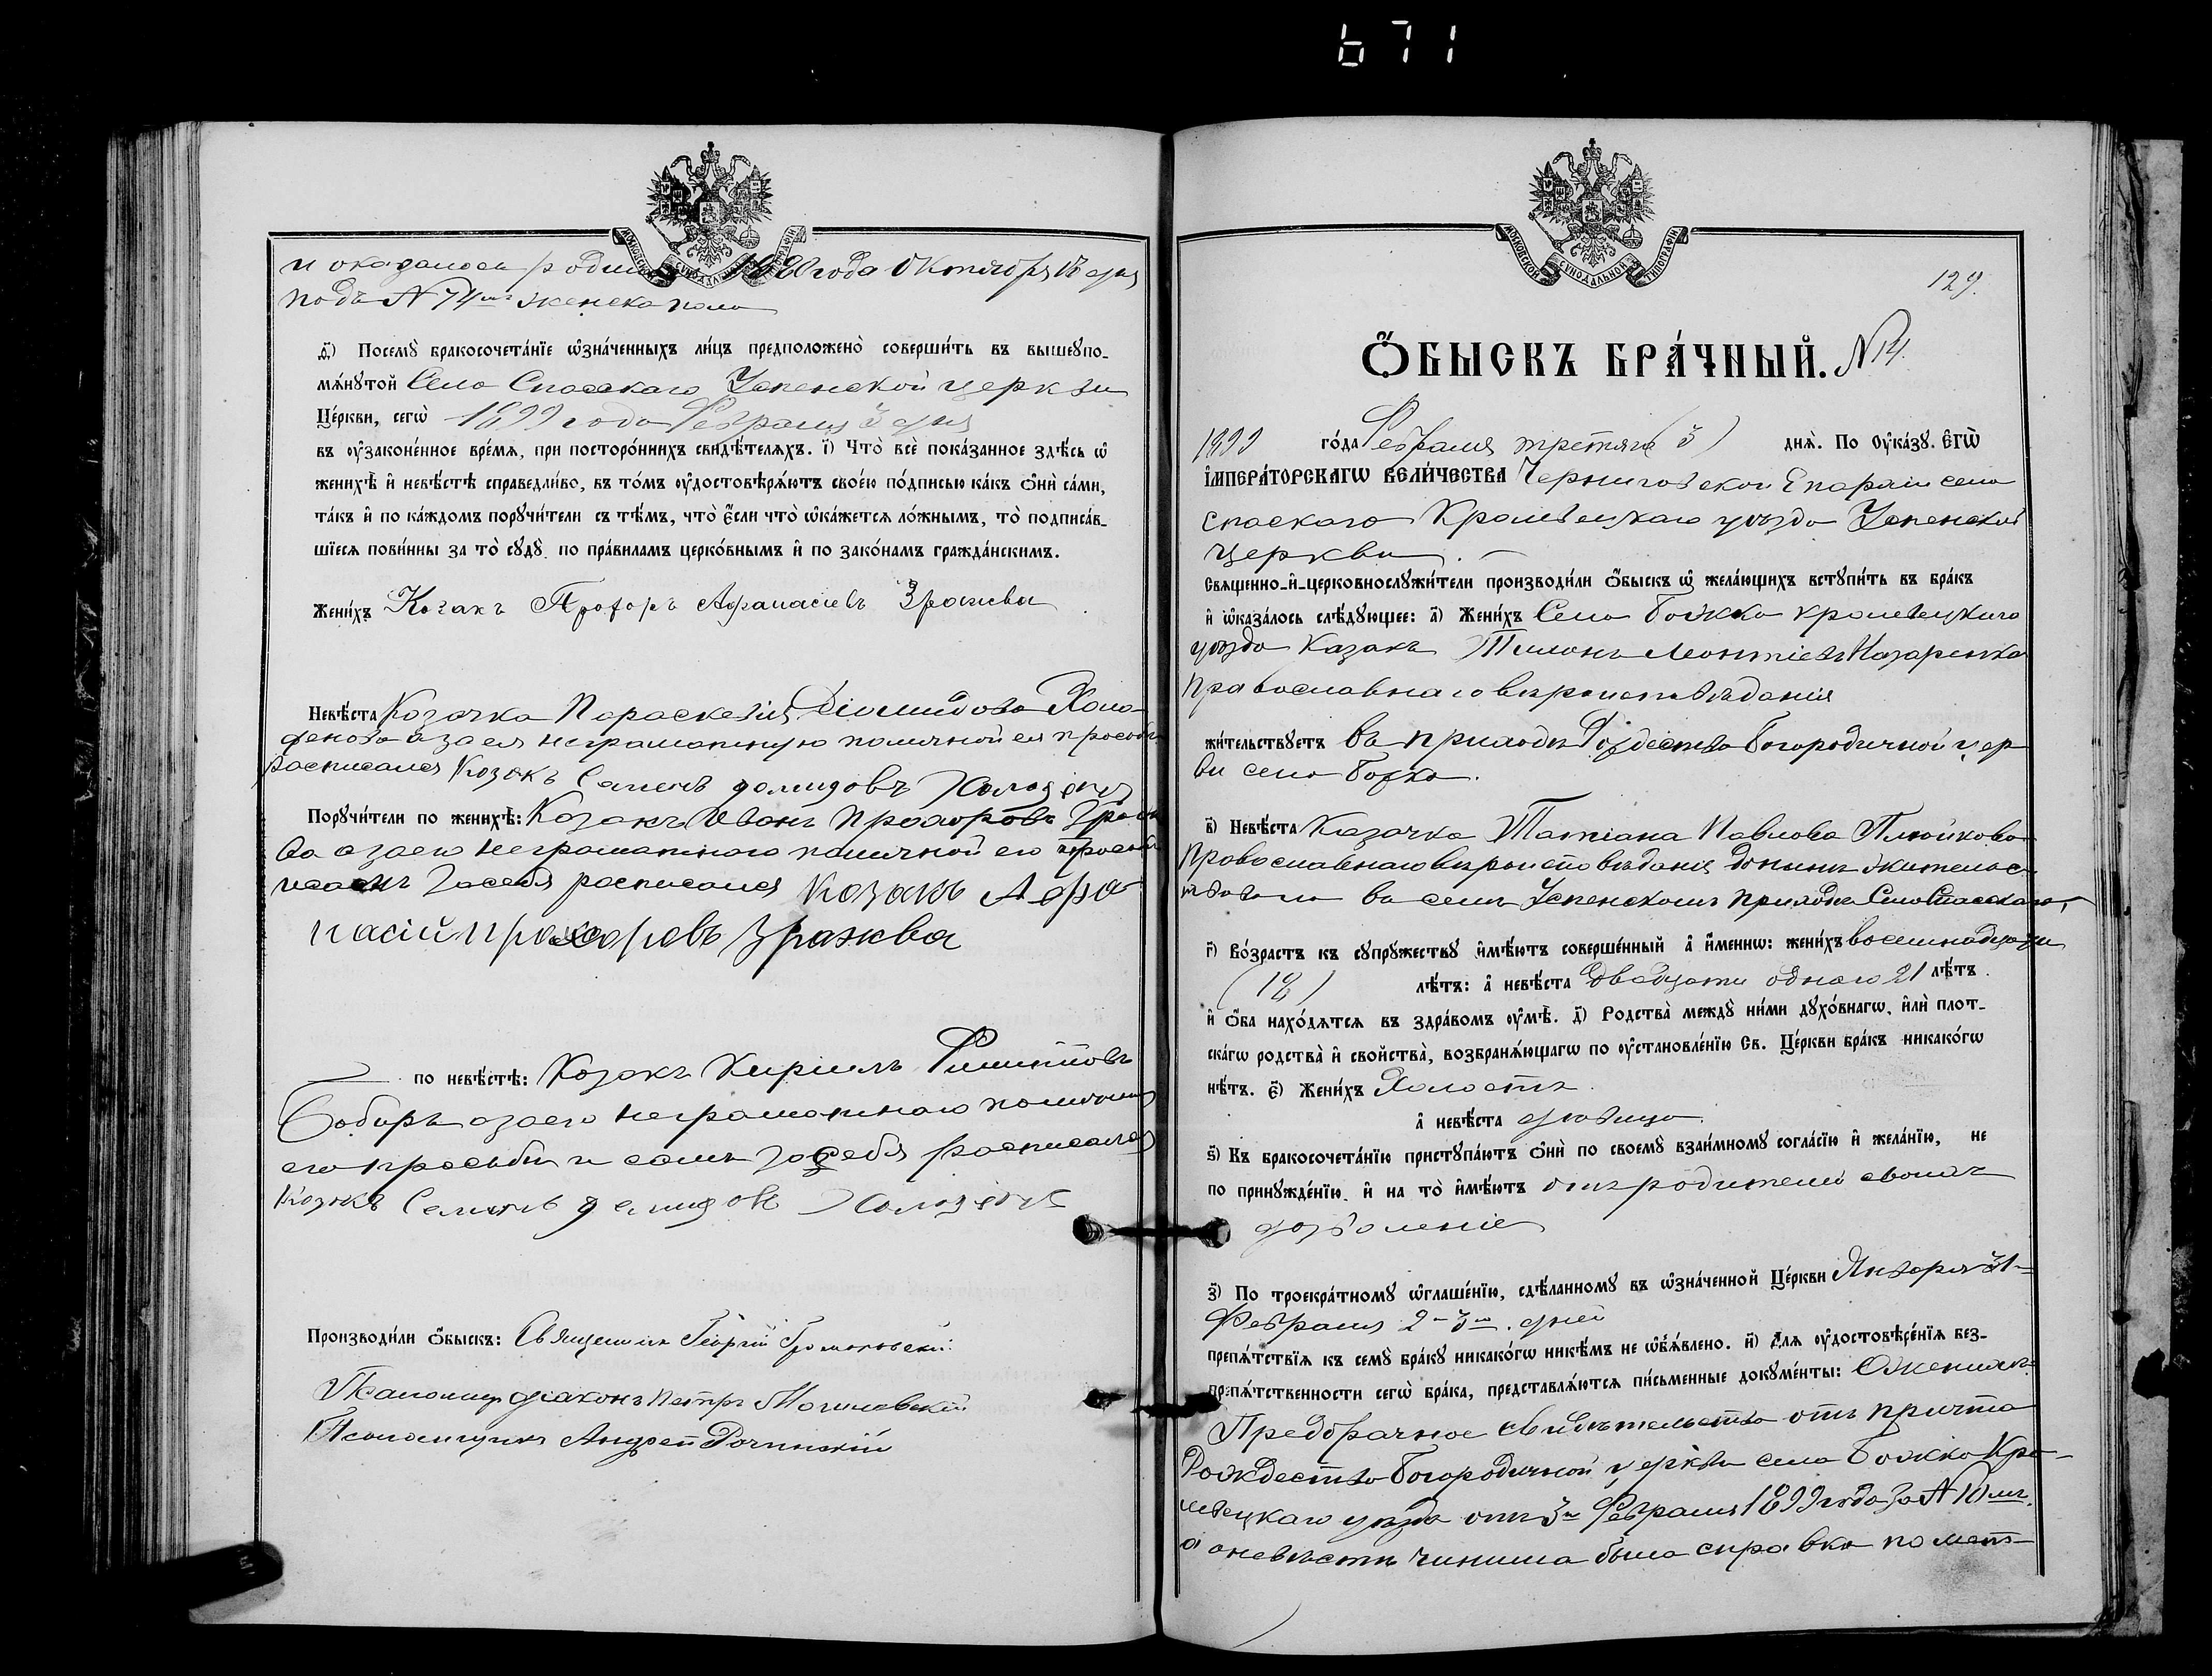 671
МОСКОВСКОЙ СѴНОДАЛЬНОЙ ТИПОГРАФІИ
и оказалось родил 1880 года Октября 18 дня
подъ № 74мъ женска пола
д҃) Посемꙋ̀ бракосочета́нїе ѡ҆зна́ченныхъ ли́цъ предположено̀ соверши́ть въ вышеꙋпо-
мѧ́нꙋтой Села Спасскаго Успенской церкви
Це́ркви, сегѡ̀ 1899 года Февраля 3 дня
въ ᲂу҆законе́нное вре́мѧ, при посторо́ннихъ свидѣ́телѧхъ. і҃) Что̀ всѐ пока́занное здѣ́сь ѡ҆
женихѣ̀ и҆ невѣ́стѣ справедли́во, въ то́мъ ᲂу҆достовѣрѧ́ютъ свое́ю по́дписью ка́къ ѻ҆нѝ са́ми,
та́къ и҆ по ка́ждомъ порꙋчи́тели съ тѣ́мъ, что̀ є҆́сли что̀ ѡ҆ка́жетсѧ ло́жнымъ, то̀ подписа́в-
шїесѧ пови́нны за то̀ сꙋдꙋ̀ по пра́виламъ церко́внымъ и҆ по зако́намъ гражда́нскимъ.
Жени́хъ Козакъ Прохоръ Афанасіевъ Зражва
Невѣ́ста Козачка Параскевія Діомидова Холо-
денова а за ея неграмотную по личной ея просьбѣ
расписался Козакъ Семенъ демидовъ Холоденъ
Порꙋчи́тели по женихѣ̀: Козакъ Иванъ Прохоровъ Зраж
ва а за его неграмотнаго по личной его просьбѣ
и самъ за себя расписался Козакъ Афа-
насій прохоровъ Зражва
по невѣ́стѣ: Козакъ Кирилъ Филиповъ
Бобырь а за его неграмотнаго по личной
его просьбѣ и самъ за себя расписался
Козакъ Семенъ демидовъ Холоденъ
Производи́ли ѻ҆́быскъ: Священникъ Георгій
Псаломщ діаконъ Петръ Могилевскій
Псаломщикъ Андрей Рачинскій
МОСКОВСКОЙ СѴНОДАЛЬНОЙ ТИПОГРАФІИ
129.
Ѻ҆́БЫСКЪ БРА́ЧНЫЙ. № 14.
1899 го́да Февраля третяго (3) днѧ̀. По Оу҆ка́зꙋ Є҆гѡ̀
І҆МПЕРА́ТОРСКАГѠ ВЕЛИ́ЧЕСТВА Черниговской Епархіи села
Спаскаго Кролевецкаго уѣзда Успенской
церкви
Свѧщенно-и҆-церковнослꙋжи́тели производи́ли ѻ҆́быскъ ѡ҆ жела́ющихъ встꙋпи́ть въ бра́къ
и҆ ѡ҆каза́лось слѣ́дꙋющее: а҃) Жени́хъ Села Божка Кролевецкаго
уѣзда Казакъ Тимонъ Леонтіевъ Назаренко
Православнаго вѣроисповѣданія
жи́тельствꙋетъ въ приходѣ Рождество Богородичной цер
ви села Божка.
в҃) Невѣ́ста Казачка Татіана Павлова Плюйкова
Православнаго вѣроисповѣданія донынѣ жительс-
твовала въ семъ Успенскомъ приходѣ Села Спасскаго,
г҃) Во́зрастъ къ сꙋпрꙋ́жествꙋ и҆мѣ́ютъ соверше́нный а҆ и҆́меннѡ: жени́хъ восемнадцати
(18) лѣ́тъ: а҆ невѣ́ста двадцати одного 21 лѣ́тъ.
и҆ ѻ҆́ба нахо́дѧтсѧ въ здра́вомъ ᲂу҆мѣ̀. д҃) Родства̀ междꙋ̀ ни́ми дꙋхо́внагѡ, и҆лѝ плот-
ска́гѡ родства̀ и҆ сво́йства, возбранѧ́ющагѡ по ᲂу҆становле́нїю Св. Це́ркви бра́къ никако́гѡ
нѣ́тъ. є҃) Жени́хъ Холостъ.
а҆ невѣ́ста дѣвица
ѕ҃) Къ бракосочета́нїю пристꙋпа́ютъ ѻ҆нѝ по своемꙋ̀ взаи́мномꙋ согла́сїю и҆ жела́нїю, не
по принꙋжде́нїю, и҆ на то̀ и҆мѣ́ютъ отъ родителей своихъ
дозволеніе
з҃) По троекра́тномꙋ ѡ҆глаше́нїю, сдѣ́ланномꙋ въ ѡ҆зна́ченной Це́ркви Января 31-
Февраля 2-3го дней
препѧ́тствїѧ къ семꙋ̀ бра́кꙋ никако́гѡ никѣ́мъ не ѡ҆б̾ѧ́влено. и҃) Длѧ ᲂу҆достовѣре́нїѧ без-
препѧ́тственности сегѡ̀ бра́ка, представлѧ́ютсѧ пи́сьменные докꙋме́нты: О женихѣ
Предбрачное свидѣтельство отъ причта
Рождество Богородичной церкви села Божка Кро-
левецкаго уѣзда отъ 3го Февраля 1899 года за № 10мъ.
а о невѣстѣ чинима была справка по мет-